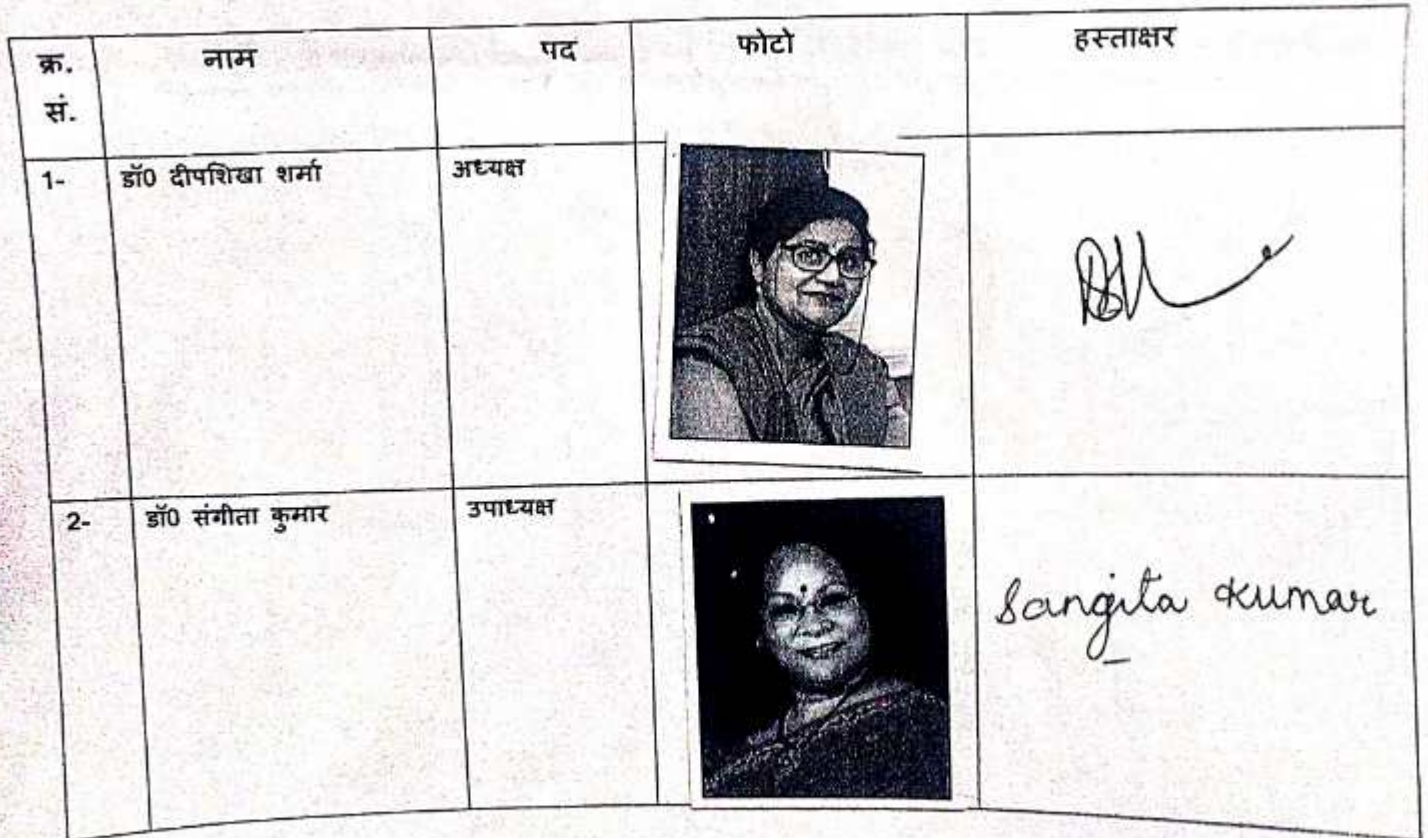 क्र. नाम पद फोटो हस्ताक्षर
सं.
1- डॉ0 दीपशिखा शर्मा अध्यक्ष
2- डॉ0 संगीता कुमार उपाध्यक्ष
Sangita Kumar